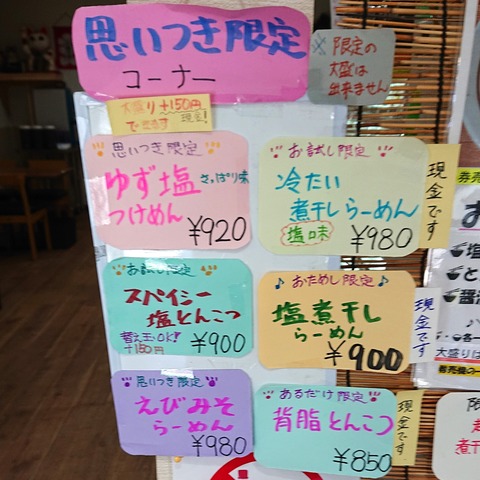 思いつき限定
コーナー
※限定の
大盛は
出来ません
大盛り+150円
で出来ます
現金!
思いつき限定
ゆず塩
さっぱり味
つけめん
¥920
お試し限定
冷たい
煮干しらーめん
塩味
¥980
現金です
お試し限定
スパイシー
塩とんこつ
替え玉OK!
+150円
¥900
♪おためし限定♪
塩煮干し
らーめん
¥900
現金です
思いつき限定
えびみそ
らーめん
¥980
あるだけ限定
背脂とんこつ
¥850
現金です